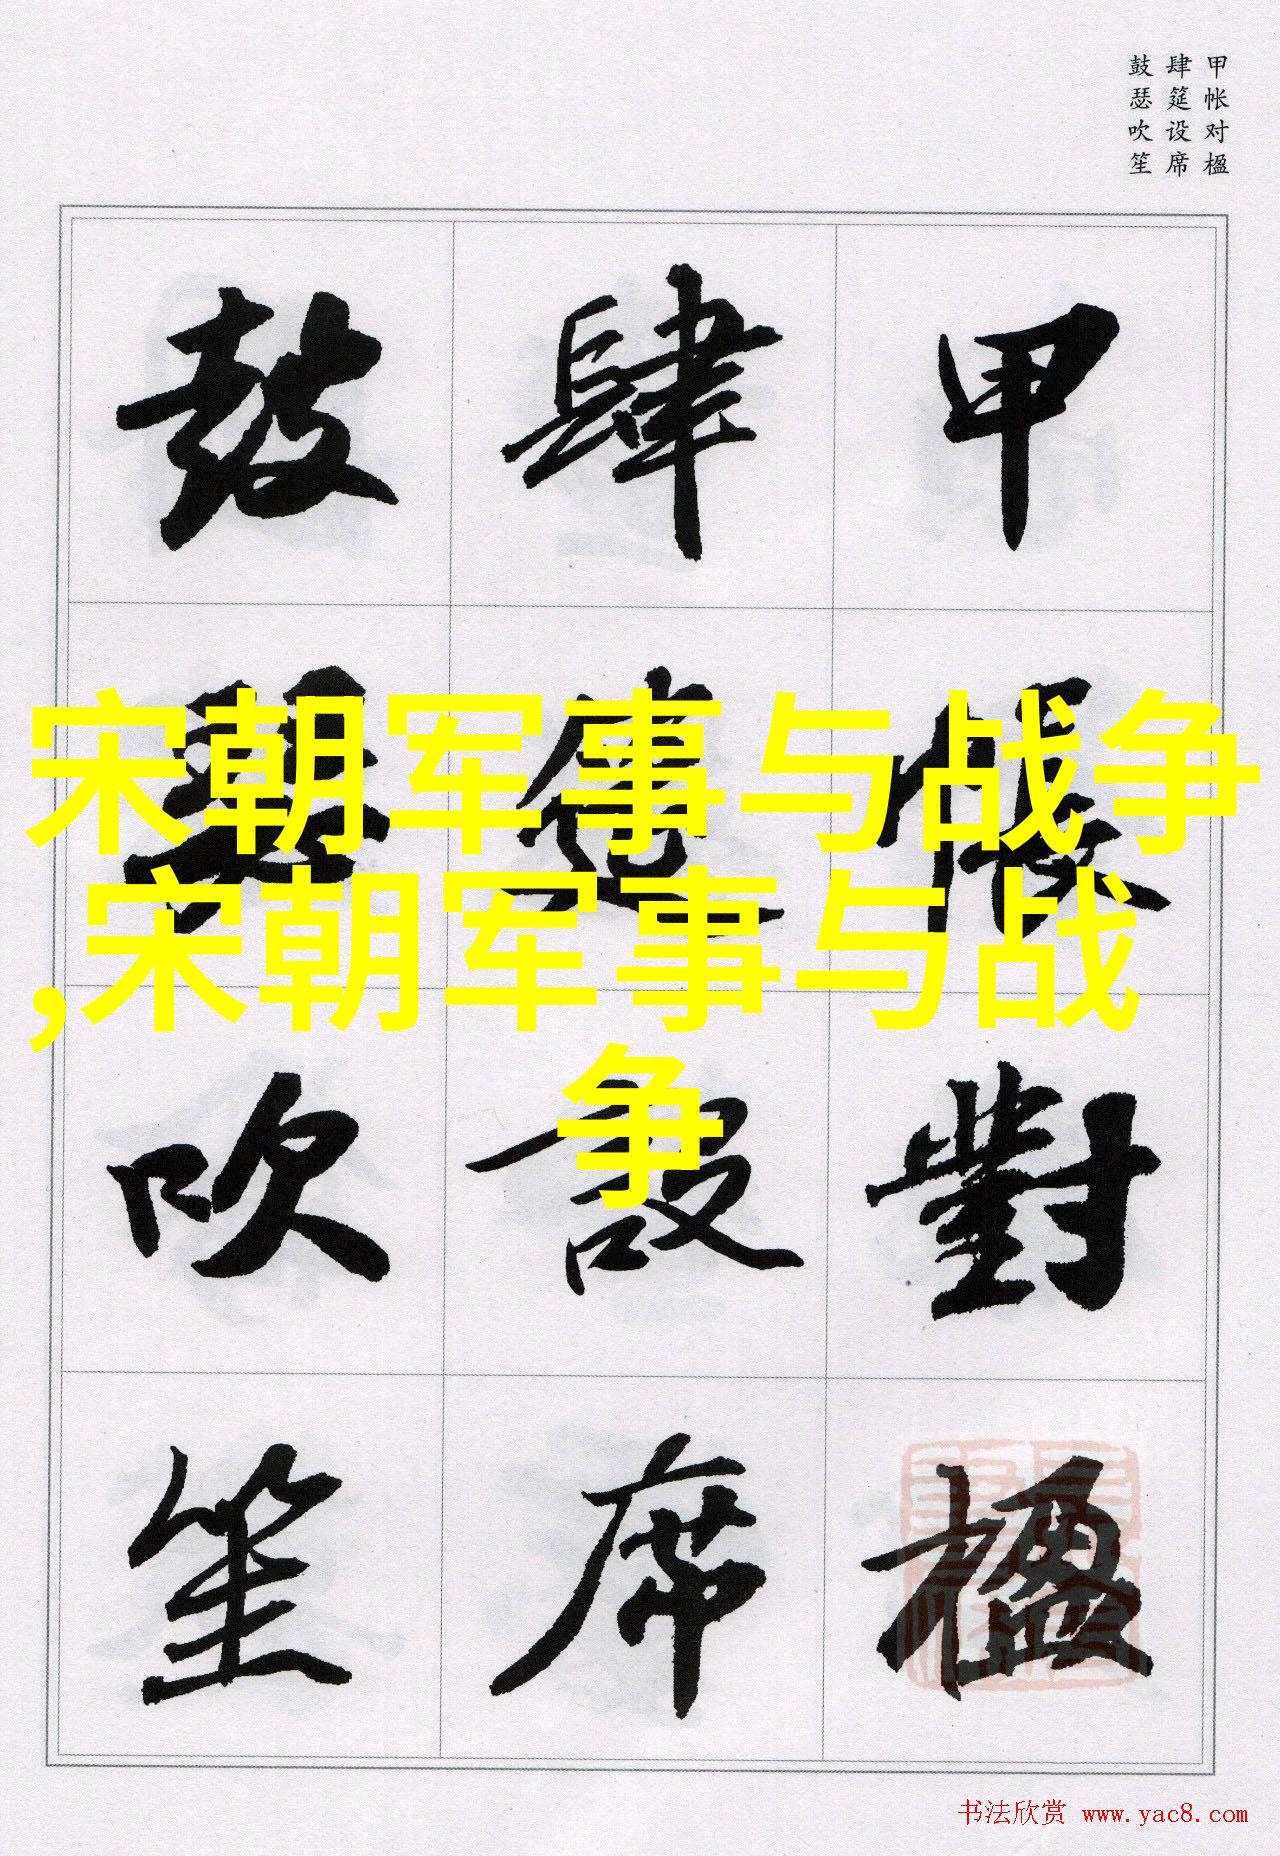 甲帐对楹
肆筵设席
鼓瑟吹笙
甲帳對楹
肆筵設席
鼓瑟吹笙
宋朝军事与战争
,宋朝军事与战
争
书法欣赏 www.yac8.com